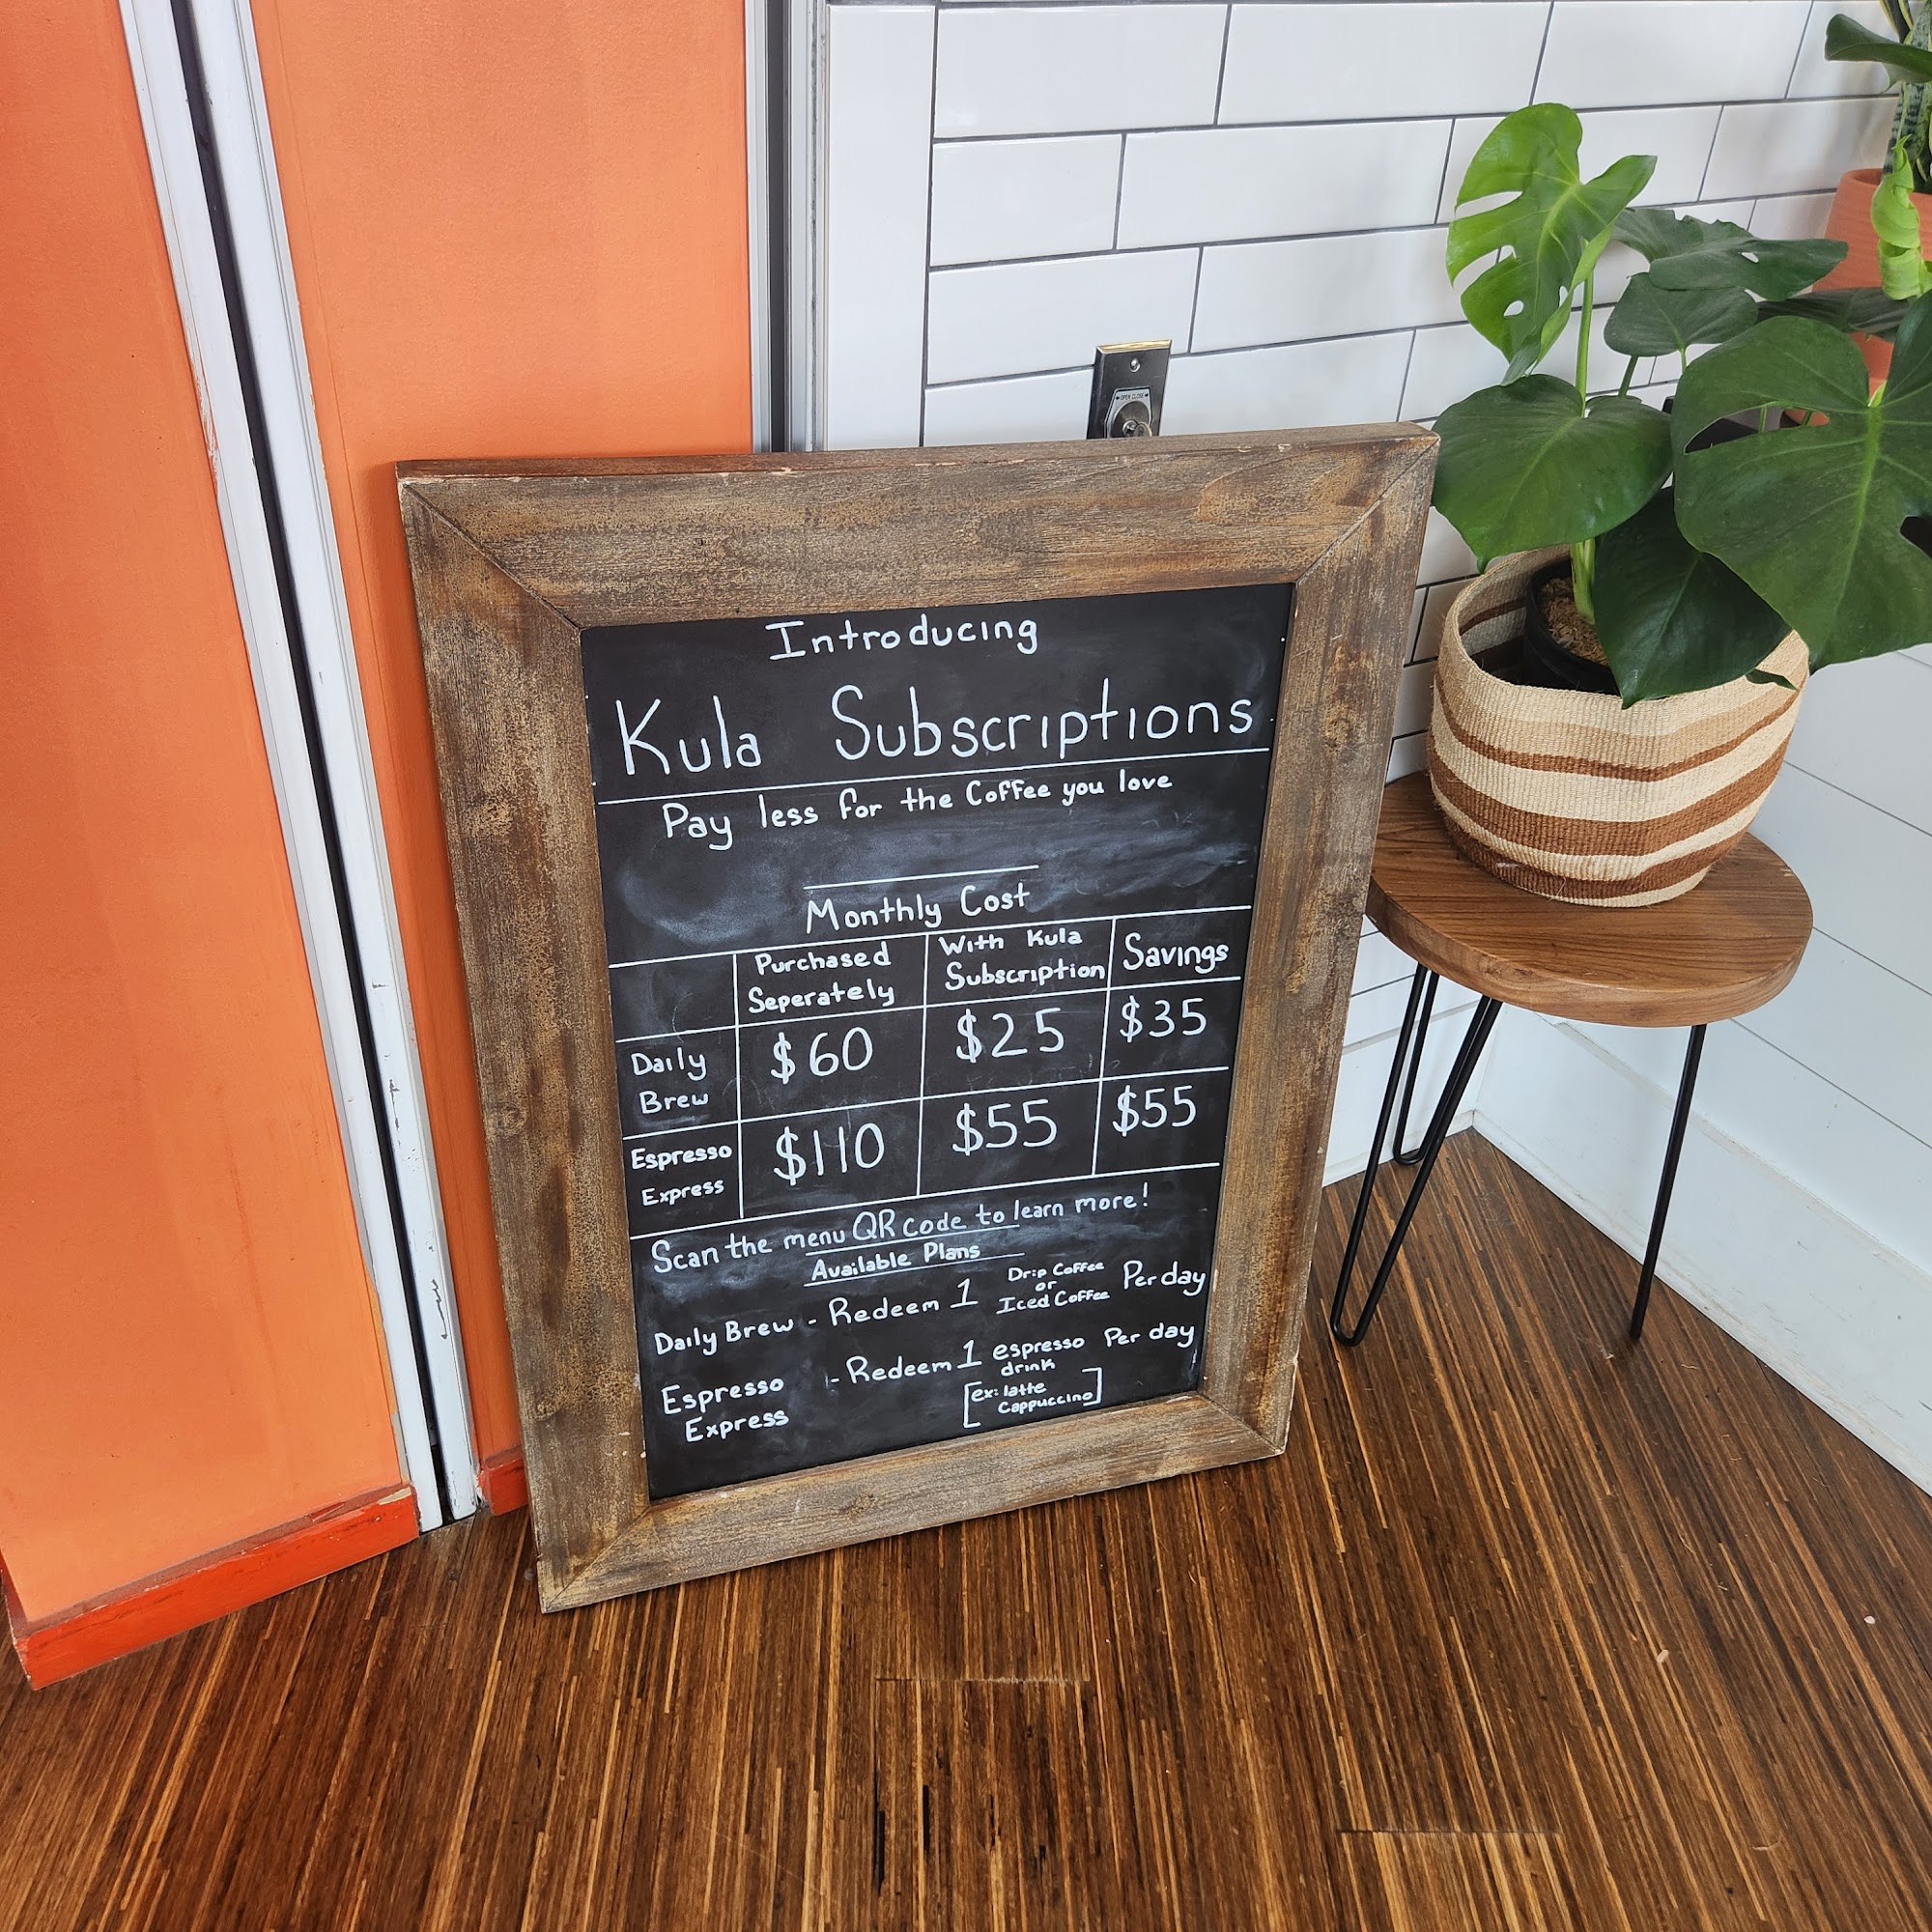 OPEN CLOSE
Introducing
Kula Subscriptions
Pay less for the Coffee you love
Monthly Cost
Purchased Seperately
With Kula Subscription
Savings
Daily Brew
$60
$25
$35
Espresso Express
$110
$55
$55
Scan the menu QR code to learn more!
Available Plans
Daily Brew - Redeem 1 Drip Coffee or Iced Coffee Per day
Espresso Express - Redeem 1 espresso drink Per day
[ex: latte Cappuccino]